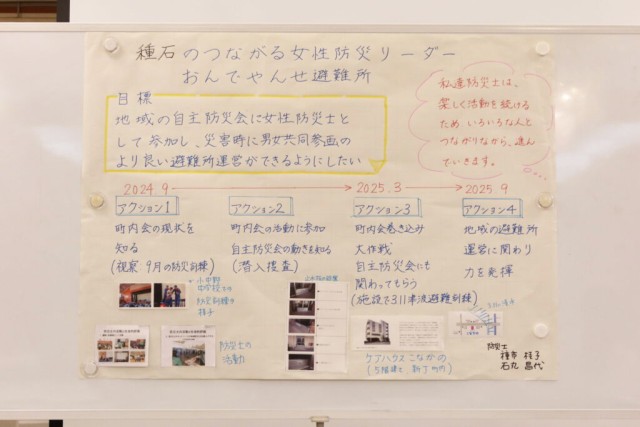 種石のつながる女性防災リーダー
おんでやんせ避難所
目標
地域の自主防災会に女性防災士と
して参加し、災害時に男女共同参画の
より良い避難所運営ができるようにしたい
私達防災士は、
楽しく活動を続ける
ため いろいろな人と
つながりながら、進ん
でいきます。
2024.9
2025.3
2025.9
アクション1
町内会の現状を
知る
(視察 9月の防災訓練)
小中野
防災訓練の
様子
防災士の
活動
アクション2
町内会の活動に参加
自主防災会の動きを知る
(潜入捜査)
アクション3
町内会巻き込み
大作戦
自主防災会にも
関わってもらう
(施設で3.11津波避難訓練)
ケアハウス こなかの
アクション4
地域の避難所
運営に関わり
力を発揮
防災士
種市 桂子
石丸 昌代